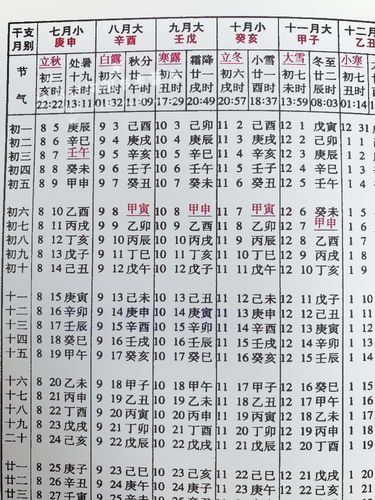 干支 七月小 八月大 九月大 十月小 十一月大 十二月
月别 庚申 辛酉 壬戌 癸亥 甲子 乙丑
节 立秋 处暑 白露 秋分 寒露 霜降 立冬 小雪 大雪 冬至 小寒
初三 十九 初六 廿一 初六 廿一 初六 廿一 初七 廿二 初六
气 亥时 未时 丑时 午时 酉时 戌时 戌时 酉时 未时 辰时 丑时
22:22 13:11 01:32 11:09 17:29 20:49 20:57 18:37 13:59 08:03 01:14
初一 8 5 庚辰 9 3 己酉 10 3 己卯 11 2 己酉 12 1 戊寅 12 31
初二 8 6 辛巳 9 4 庚戌 10 4 庚辰 11 3 庚戌 12 2 己卯 1 1
初三 8 7 壬午 9 5 辛亥 10 5 辛巳 11 4 辛亥 12 3 庚辰 1 2
初四 8 8 癸未 9 6 壬子 10 6 壬午 11 5 壬子 12 4 辛巳 1 3
初五 8 9 甲申 9 7 癸丑 10 7 癸未 11 6 癸丑 12 5 壬午 1 4
初六 8 10 乙酉 9 8 甲寅 10 8 甲申 11 7 甲寅 12 6 癸未 1 5
初七 8 11 丙戌 9 9 乙卯 10 9 乙酉 11 8 乙卯 12 7 甲申 1 6
初八 8 12 丁亥 9 10 丙辰 10 10 丙戌 11 9 丙辰 12 8 乙酉 1 7
初九 8 13 戊子 9 11 丁巳 10 11 丁亥 11 10 丁巳 12 9 丙戌 1 8
初十 8 14 己丑 9 12 戊午 10 12 戊子 11 11 戊午 12 10 丁亥 1 9
十一 8 15 庚寅 9 13 己未 10 13 己丑 11 12 己未 12 11 戊子 1 10
十二 8 16 辛卯 9 14 庚申 10 14 庚寅 11 13 庚申 12 12 己丑 1 11
十三 8 17 壬辰 9 15 辛酉 10 15 辛卯 11 14 辛酉 12 13 庚寅 1 12
十四 8 18 癸巳 9 16 壬戌 10 16 壬辰 11 15 壬戌 12 14 辛卯 1 13
十五 8 19 甲午 9 17 癸亥 10 17 癸巳 11 16 癸亥 12 15 壬辰 1 14
十六 8 20 乙未 9 18 甲子 10 18 甲午 11 17 甲子 12 16 癸巳 1 15
十七 8 21 丙申 9 19 乙丑 10 19 乙未 11 18 乙丑 12 17 甲午 1 16
十八 8 22 丁酉 9 20 丙寅 10 20 丙申 11 19 丙寅 12 18 乙未 1 17
十九 8 23 戊戌 9 21 丁卯 10 21 丁酉 11 20 丁卯 12 19 丙申 1 18
二十 8 24 己亥 9 22 戊辰 10 22 戊戌 11 21 戊辰 12 20 丁酉 1 19
廿一 8 25 庚子 9 23 己巳 10 23 己亥 11 22 己巳 12 21 戊戌 1 20
廿二 8 26 辛丑 9 24 庚午 10 24 庚子 11 23 庚午 12 22 己亥 1 21
廿三 8 27 壬寅 9 25 辛未 10 25 辛丑 11 24 辛未 12 23 庚子